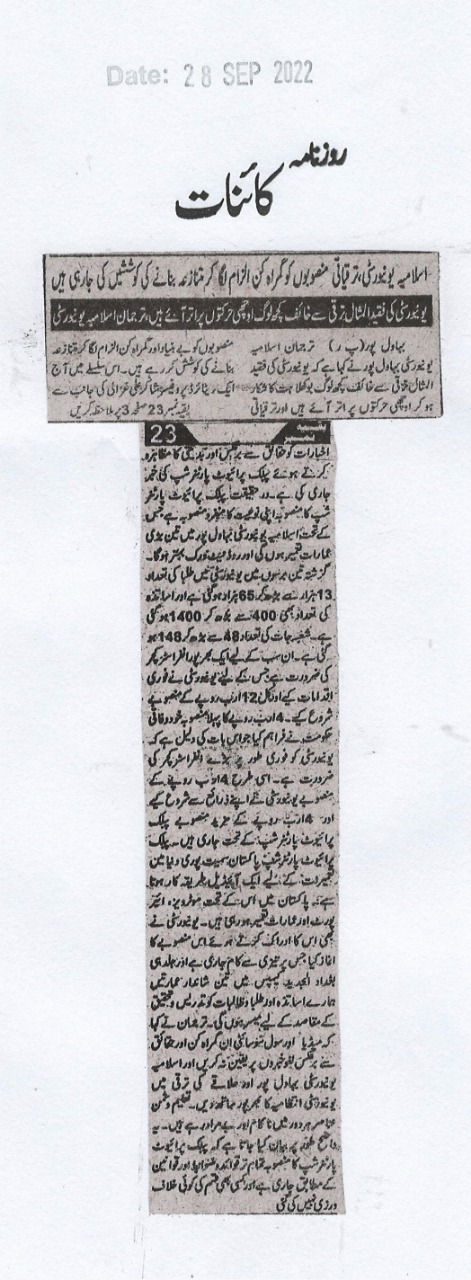 Date: 28 SEP 2022
روزنامہ
کائنات
اسلامیہ یونیورسٹی، ترقیاتی منصوبوں کو گمراہ کن الزام لگا کر متنازعہ بنانے کی کوششیں کی جارہی ہیں
یونیورسٹی کی فقید المثال ترقی سے خائف کچھ لوگ اوچھی حرکتوں پر اتر آئے ہیں، ترجمان اسلامیہ یونیورسٹی
بہاول پور(پ ر) ترجمان اسلامیہ
یونیورسٹی بہاول پور نے کہا ہے کہ یونیورسٹی کی فقید
المثال ترقی سے خائف کچھ لوگ بوکھلاہٹ کا شکار
ہو کر اوچھی حرکتوں پر اتر آئے ہیں اور ترقیاتی
منصوبوں کو بے بنیاد اور گمراہ کن الزام لگا کر متنازعہ
بنانے کی کوشش کر رہے ہیں۔ اس سلسلے میں آج
ایک ریٹائرڈ پروفیسر شاکر علی غزالی کی جانب سے
بقیہ نمبر 23 صفحہ 3 پر ملاحظہ کریں
بقیہ نمبر 23
اخبارات کو حقائق سے برعکس اور بدنیتی کا مظاہرہ
کرتے ہوئے پبلک پرائیوٹ پارٹنر شپ کی خبر
جاری کی ہے۔ درحقیقت پبلک پرائیوٹ پارٹنر
شپ کا منصوبہ اپنی نوعیت کا منفرد منصوبہ ہے جس
کے تحت اسلامیہ یونیورسٹی بہاول پور میں تین بڑی
عمارات تعمیر ہوں گی اور روڈ نیٹ ورک بہتر ہوگا۔
گزشتہ تین برسوں میں یونیورسٹی میں طلبا کی تعداد
13 ہزار سے بڑھ کر 65 ہزار ہو گئی ہے اور اساتذہ
کی تعداد بھی 400 سے بڑھ کر 1400 ہو گئی
ہے۔ شعبہ جات کی تعداد 48 سے بڑھ کر 148 ہو
گئی ہے۔ ان سب کے لیے ایک بھرپور انفراسٹرکچر
کی ضرورت ہے جس کے لیے یونیورسٹی نے فوری
اقدامات کیے اور کل 12 ارب روپے کے منصوبے
شروع کیے۔ 4 ارب روپے کا پہلا منصوبہ خود وفاقی
حکومت نے فراہم کیا جو اس بات کی دلیل ہے کہ
یونیورسٹی کو فوری طور پر بڑے انفراسٹرکچر کی
ضرورت ہے۔ اسی طرح 4 ارب روپے کے
منصوبے یونیورسٹی نے اپنے ذرائع سے شروع کیے
اور 4 ارب روپے کے مزید منصوبے پبلک
پرائیوٹ پارٹنر شپ کے تحت جاری ہیں۔ پبلک
پرائیوٹ پارٹنر شپ پاکستان سمیت پوری دنیا میں
تعمیرات کے لیے ایک آئیڈیل طریقہ کار ہوتا
ہے۔ پاکستان میں اس کے تحت موٹرویز، ائیر
پورٹ اور عمارات تعمیر ہو رہی ہیں۔ یونیورسٹی نے
بھی اس کا ادراک کرتے ہوئے اس منصوبے کا
آغاز کیا جس پر تیزی سے کام جاری ہے اور جلد ہی
بغداد الجدید کیمپس میں تین شاندار عمارتیں
ہمارے اساتذہ اور طلبا و طالبات کو تدریس و تحقیق
کے مقاصد کے لیے میسر ہوں گی۔ ترجمان نے کہا
کہ میڈیا اور سول سوسائٹی ان گمراہ کن اور حقائق
سے برعکس لغو خبروں پر یقین نہ کریں اور اسلامیہ
یونیورسٹی بہاول پور اور علاقے کی ترقی میں
یونیورسٹی انتظامیہ کا بھرپور ساتھ دیں۔ تعلیم دشمن
عناصر ہر دور میں ناکام اور بے مراد رہے ہیں۔ یہ
واضح طور پر بیان کیا جاتا ہے کہ پبلک پرائیوٹ
پارٹنر شپ کا منصوبہ تمام تر قواعد و ضوابط اور قوانین
کے مطابق جاری ہے اور کسی بھی قسم کی کوئی خلاف
ورزی نہیں کی گئی